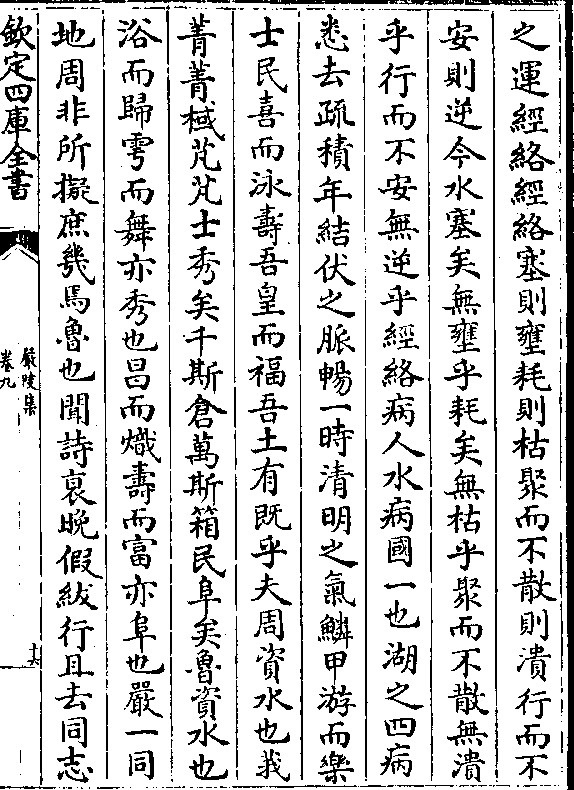 之運經絡經絡塞則壅耗則枯聚而不散則潰行而不
安則逆今水塞矣無壅乎耗矣無枯乎聚而不散無潰
乎行而不安無逆乎經絡病人水病國一也湖之四病
悉去疏積年結伏之脈暢一時清明之氣鱗甲游而樂
士民喜而泳壽吾皇而福吾土有既乎夫周資水也莪
菁菁棫芃芃士秀矣千斯倉萬斯箱民阜矣魯資水也
浴而歸雩而舞亦秀也昌而熾壽而富亦阜也嚴一同
地周非所擬庶幾焉魯也聞詩裒晚假紱行且去同志
欽定四庫全書
嚴陵集
卷九
十六